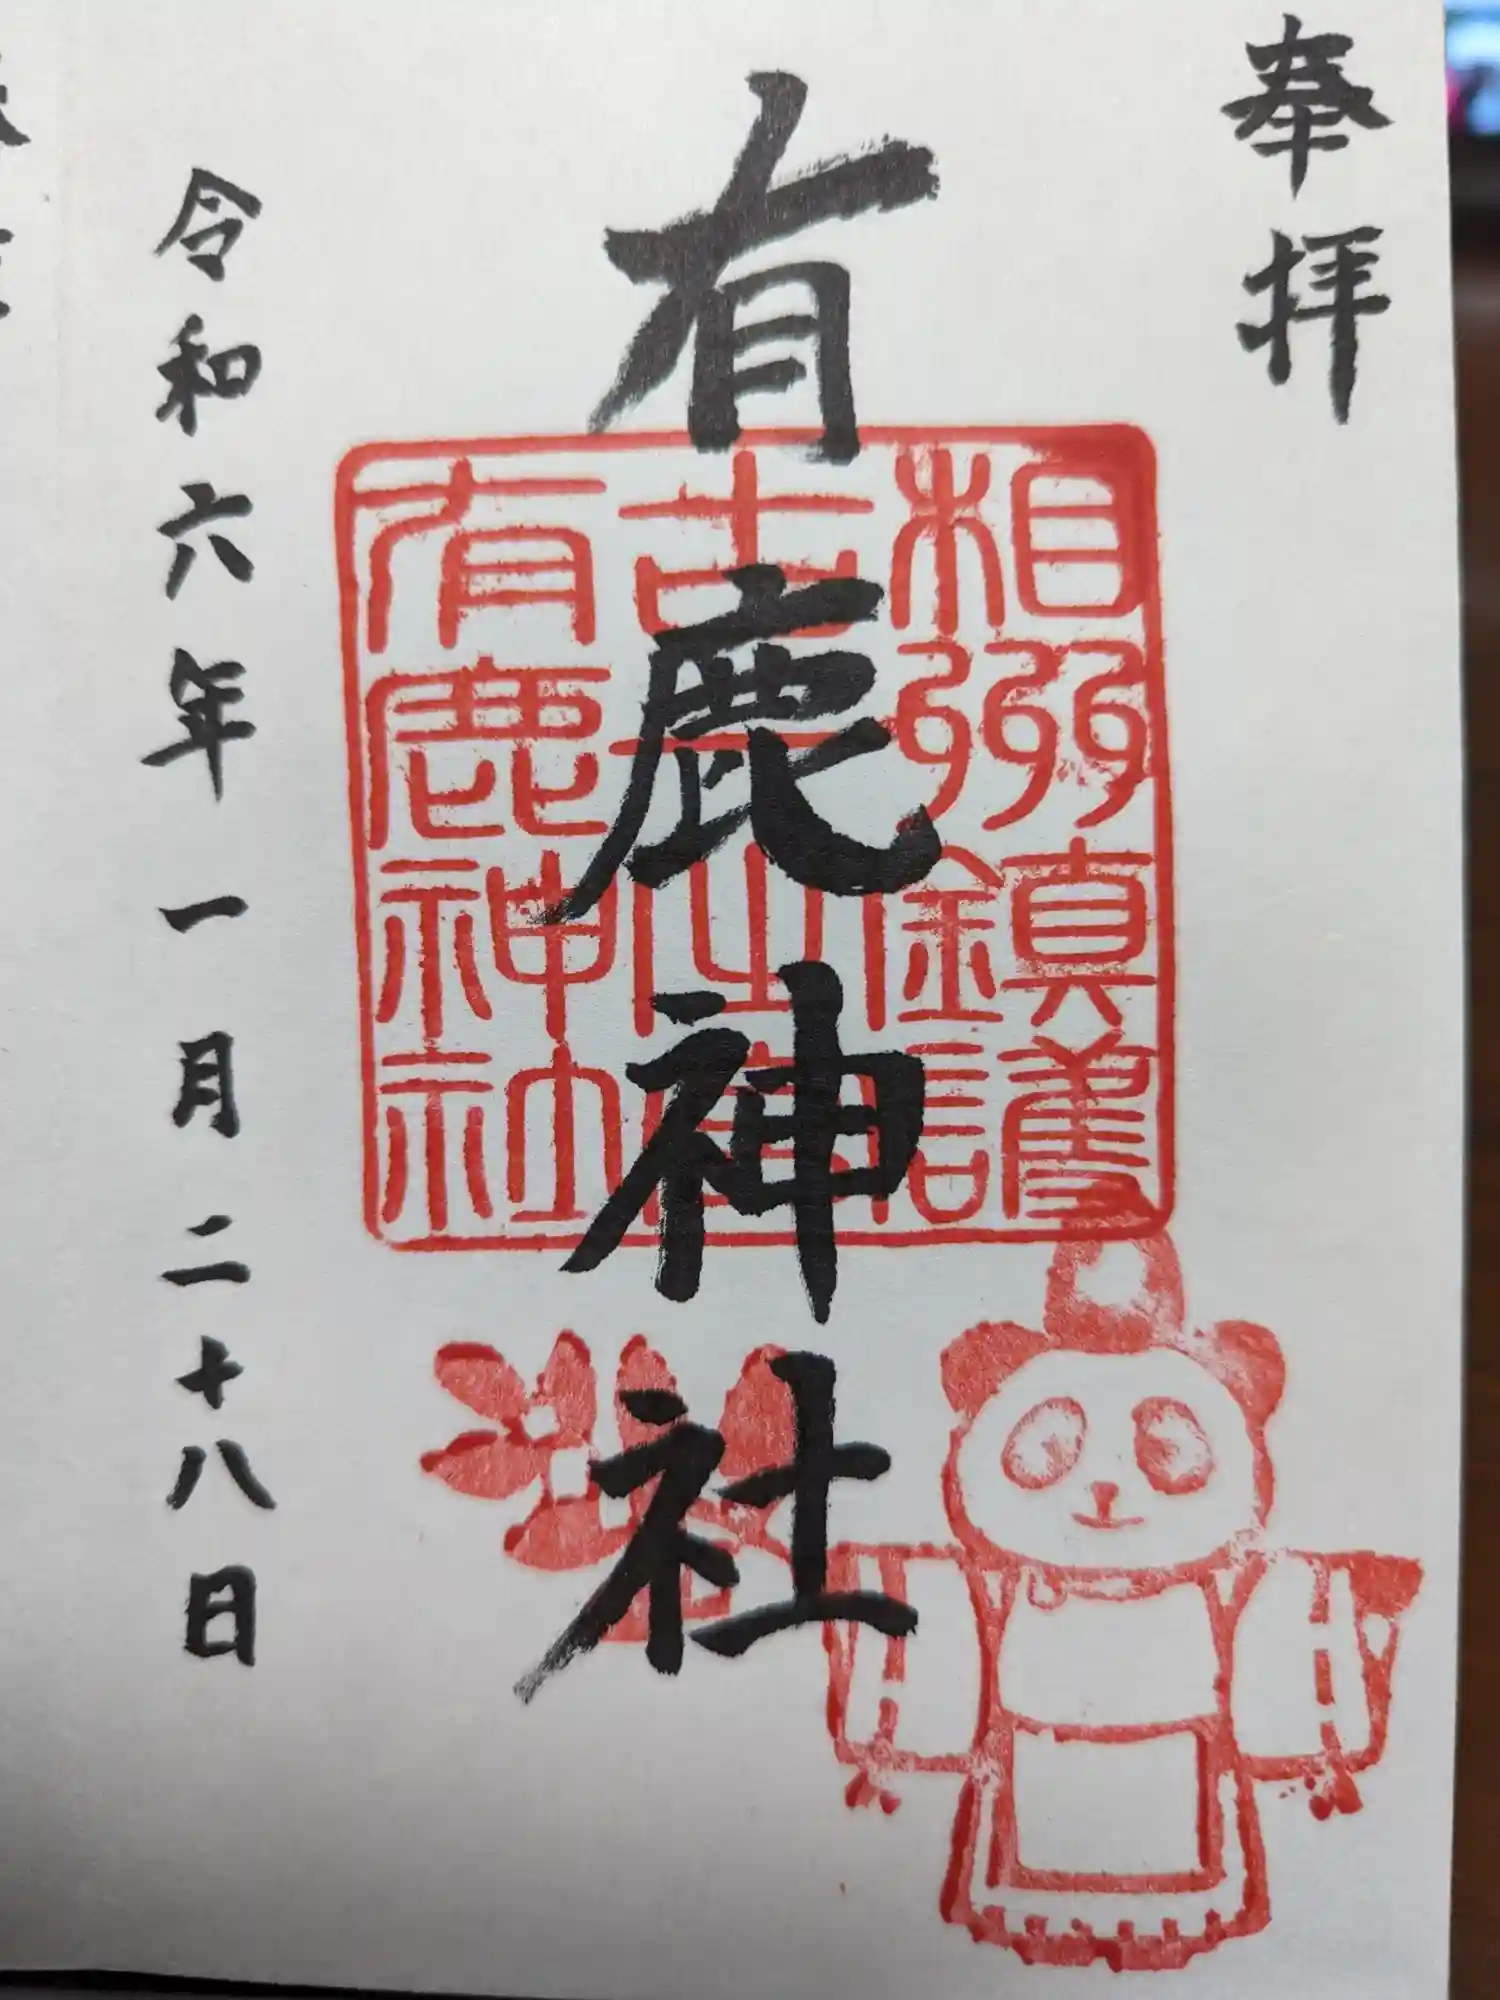 奉拝
有鹿神社
相州鎮護
有鹿神社
令和六年一月二十八日